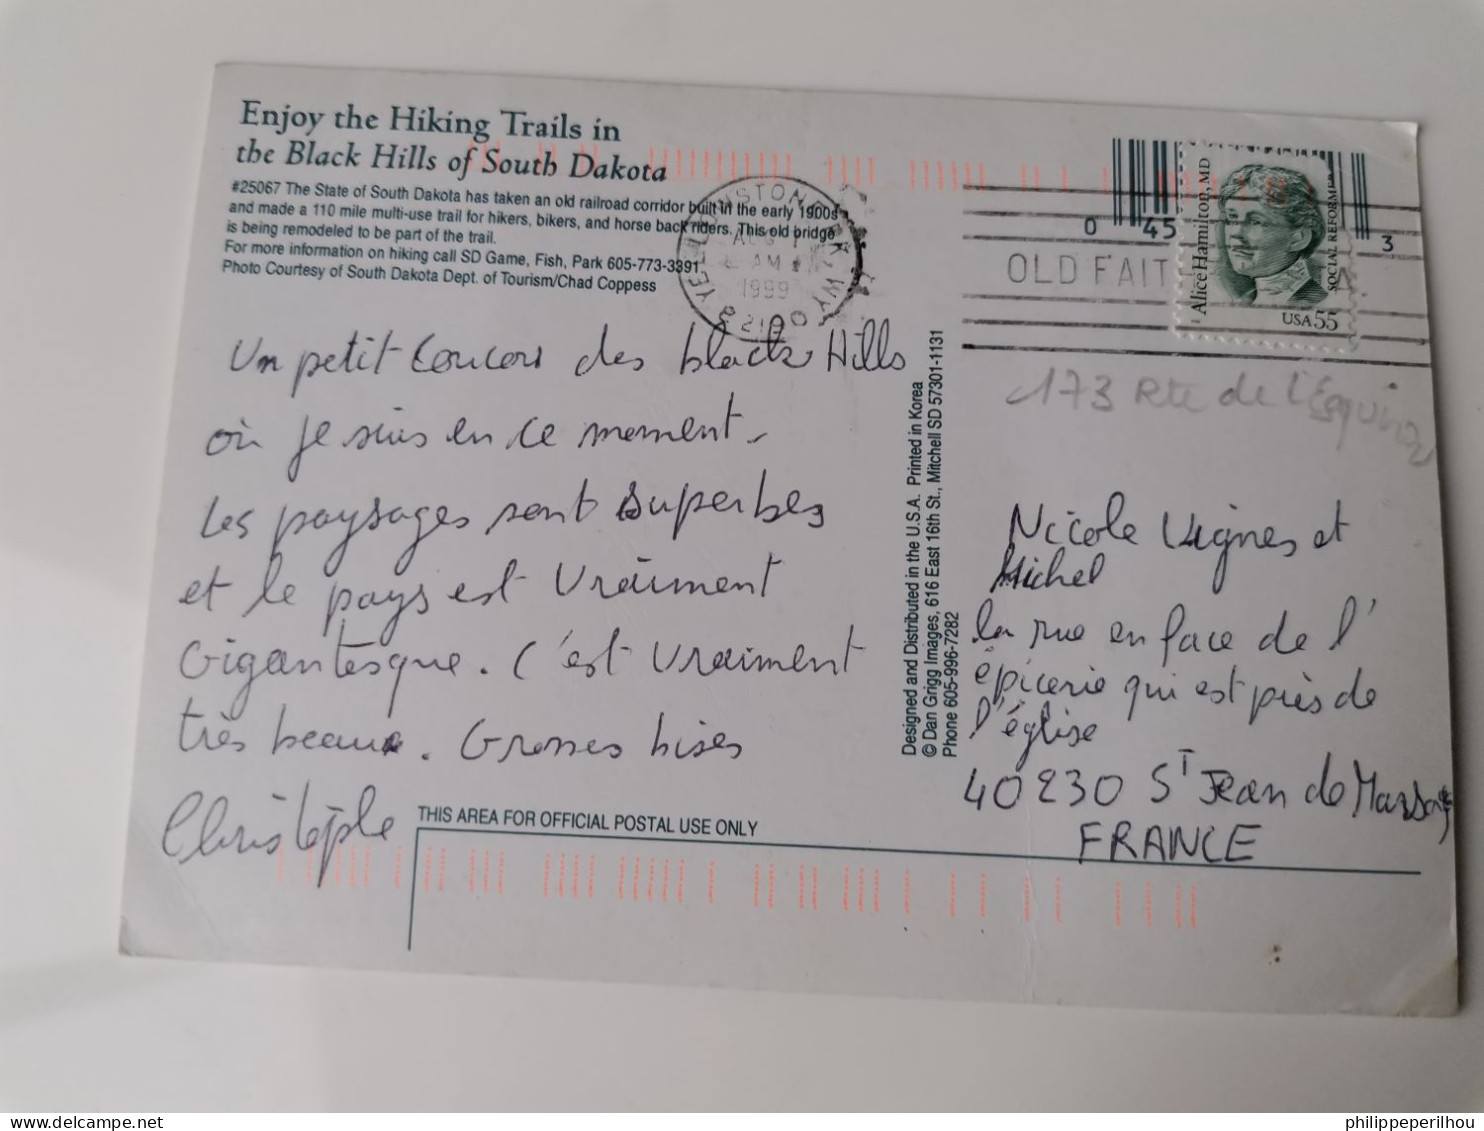 Enjoy the Hiking Trails in
the Black Hills of South Dakota
#25067 The State of South Dakota has taken an old railroad corridor built in the early 1900s
and made a 110 mile multi-use trail for hikers, bikers, and horse back riders. This old bridge
is being remodeled to be part of the trail.
For more information on hiking call SD Game, Fish, Park 605-773-3391
Photo Courtesy of South Dakota Dept. of Tourism/Chad Coppess
YELLOWSTONE PK, WYO
AUG
AM
1999
821
0 45
3
OLD FAIT
Alice Hamilton, MD
SOCIAL REFORMER
USA 55
Un petit coucou des black Hills
où je suis en ce moment.
Les paysages sont superbes
et le pays est vraiment
Gigantesque. C'est vraiment
très beau. Grosses bises
Christophe
Designed and Distributed in the U.S.A. Printed in Korea
© Dan Grigg Images, 616 East 16th St., Mitchell SD 57301-1131
Phone 605-996-7282
173 Rte de L'
Nicole Vignes et
Michel
la rue en face de l'
épicerie qui est près de
l'église
40230 St Jean de Marsacq
FRANCE
THIS AREA FOR OFFICIAL POSTAL USE ONLY
philippeperilhou